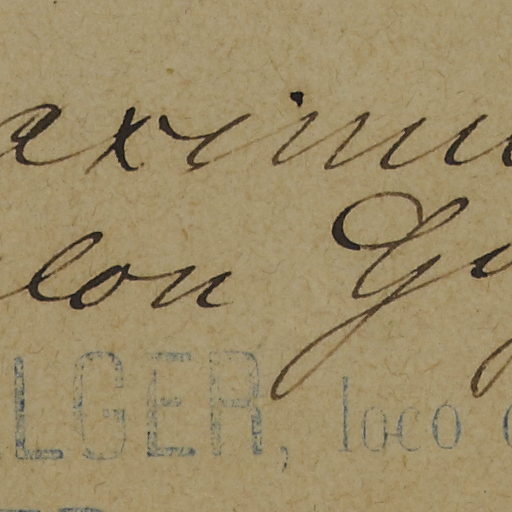 aximu
lon Gy
LGER, loco